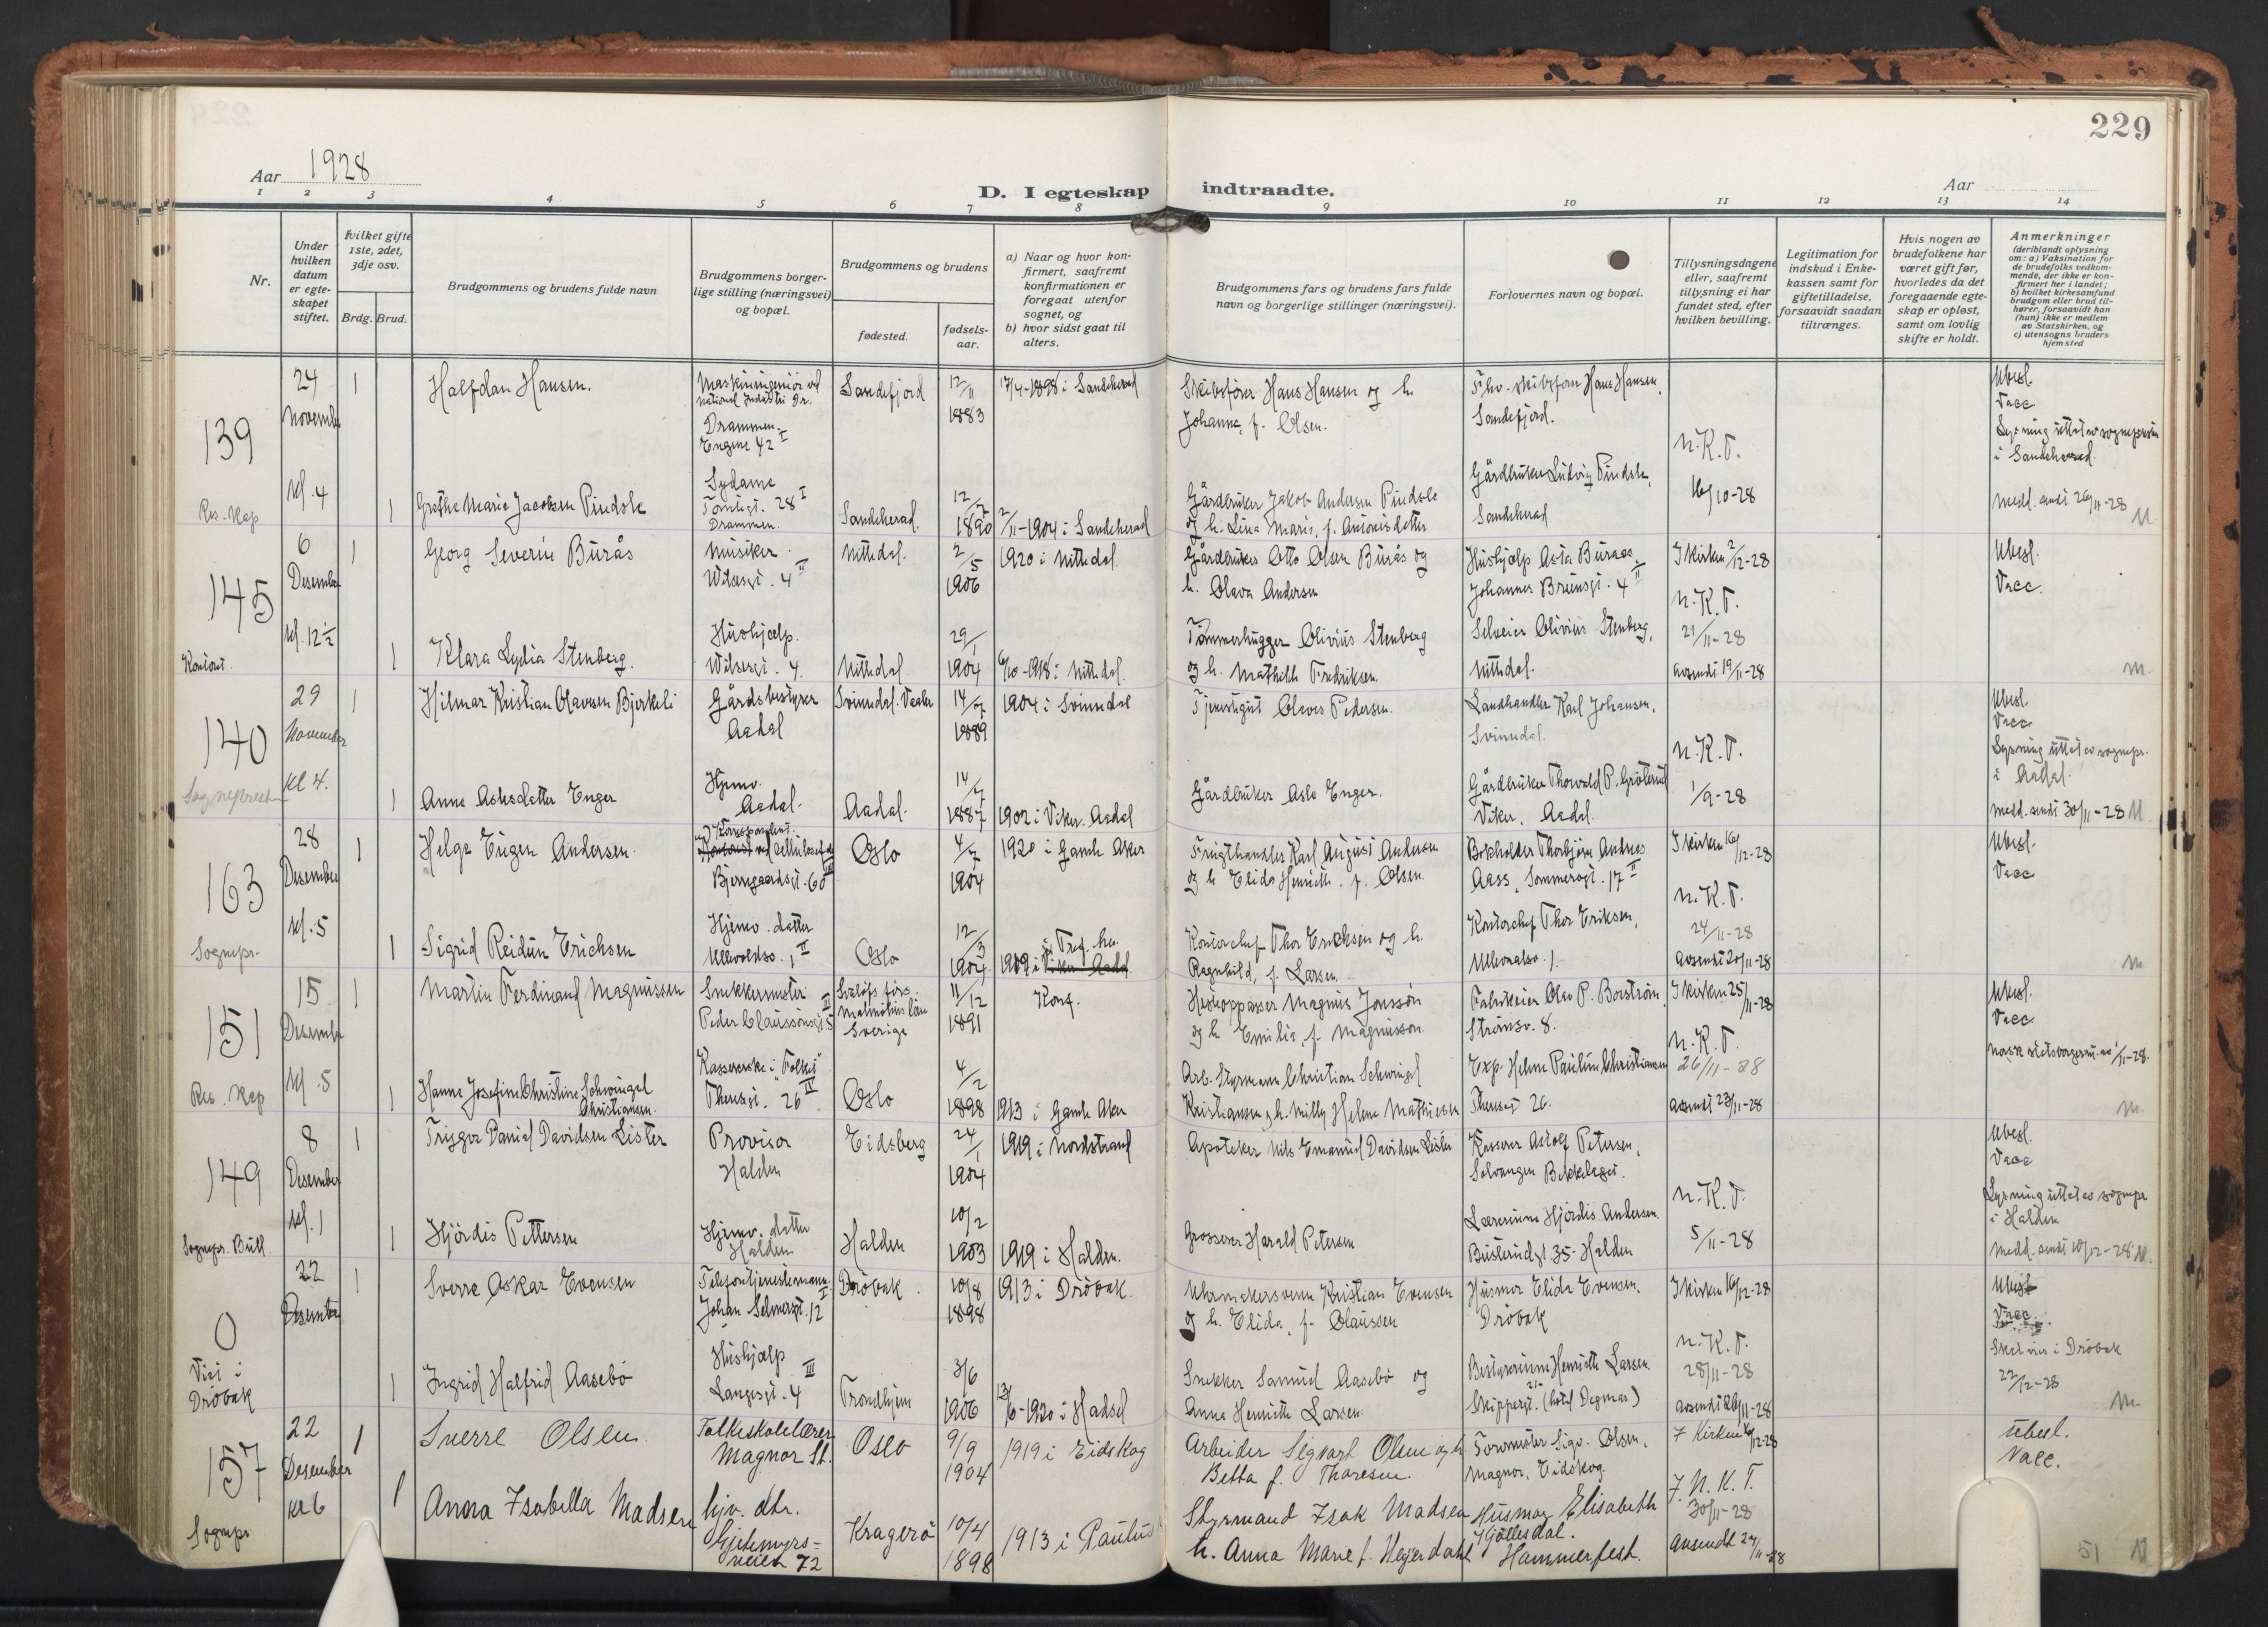 229
Aar 1928
D. I egteskap indtraadte.
Aar
1 2 3 4 5 6 7 8 9 10 11 12 13 14
Nr.
Under hvilken datum er egteskapet stiftet.
Hvilket gifte 1ste, 2det, 3dje osv.
Brdg. Brud.
Brudgommens og brudens fulde navn
Brudgommens borgerlige stilling (næringsvei) og bopæl.
Brudgommens og brudens
fødested.
fødselsaar.
a) Naar og hvor konfirmert, saafremt konfirmationen er foregaat utenfor sognet, og
b) hvor sidst gaat til alters.
Brudgommens fars og brudens fars fulde navn og borgerlige stillinger (næringsvei).
Forlovernes navn og bopæl.
Tillysningsdagene eller, saafremt tillysning ei har fundet sted, efter hvilken bevilling.
Legitimation for indskud i Enkekassen samt for giftetilladelse, forsaavidt saadan tiltrænges.
Hvis nogen av brudefolkene har været gift før, hvorledes da det foregaaende egteskap er opløst, samt om lovlig skifte er holdt.
Anmerkninger
(deriblandt oplysning om: a) Vaksination for de brudefolks vedkommende, der ikke er konfirmert her i landet; b) hvilket kirkesamfund brudgom eller brud tilhører, forsaavidt han (hun) ikke er medlem av Statskirken, og c) utensogns bruders hjemsted
139
24 November kl. 4
Res. Kap
1 Halfdan Hansen.
Maskiningeniør ved National Industri Dr. Drammen. Engene 42 I
Sandefjord
12/11 1883
17/4-1898 i Sandeherad
Skibsfører Hans Hansen og h. Johanne, f. Olsen.
Fhv. skibsfører Hans Hansen, Sandefjord.
N.K.T. 16/10-28
Ubesl. Vacc
Lysning uttat av sognepresten i Sandeherad.
Medd. sendt 26/11-28 M
1 Grethe Marie Jacobsen Pindsle
Sydame Tomtegt. 28 I Drammen.
Sandeherad.
12/7 1890
2/11-1904 i Sandeherad
Gårdbruker Jakob Andersen Pindsle og h. Lina Marie, f. Antonisdatter
Gårdbruker Ludvig Pindsle, Sandeherad
145
6 Desember kl. 12½
Kontoret.
1 Georg Severin Burås
Musiker. Wilsesgt. 4 II
Nittedal.
2/5 1906
1920 i Nittedal.
Gårdbruker Otto Olsen Burås og h. Olava Andersen
Hushjælp Asta Buraas, Johannes Brunsgt. 4 II
I kirken 2/12-28
N.K.T. 21/11-28
avsendt 19/11-28
Ubesl. Vacc.
M
1 Klara Lydia Stenberg.
Hushjælp. Wilsesgt. 4.
Nittedal.
29/1 1904
6/10-1918 i Nittedal.
Tømmerhugger Olivius Stenberg og h. Mathilde Fredriksen.
Selveier Olivius Stenberg, Nittedal.
140
29 November Kl 4.
Sogneprest
1 Hilmar Kristian Olavesen Bjerkeli
Gårdsbestyrer Aadal
Svinndal. Vaaler
14/7 1889
1904 i Svinndal
Tjenestegut Olaves Pedersen.
Landhandler Karl Johansen, Svinndal.
N.K.T. 1/9-28
Ubesl. Vacc
Lysning uttat av sognepr. i Aadal.
Medd. sendt 30/11-28 M
1 Anne Aslesdatter Enger
Hjemv. Aadal.
Aadal.
14/7 1887
1902 i Viker. Aadal
Gårdbruker Asle Enger.
Gårdbruker Thorvald P. Grøterud Viker, Aadal.
163
28 Desember kl. 5
Sognepr.
1 Helge Eugen Andersen
Korrespondent Bjerregaardsgt. 60
Oslo
4/7 1904
1920 i Gamle Aker
Frugthandler Karl August Andersen og h Elida Henriette, f. Olsen.
Bokholder Thorbjørn Andreas Aass, Sommerogt. 17 II
I kirken 16/12-28
N.K.T. 24/11-28
avsendt 20/11-28
Ubesl. Vacc
M
1 Sigrid Reidun Erichsen
Hjemv. datter Ullevoldsv. 1 II
Oslo
12/3 1904
1919 i Tref. ken. Viker Aadal
Kontorchef Thor Erichsen og h. Ragnhild, f. Larsen
Kontorchef Thor Eriksen, Ullevoldsv. 1.
151
15 Desember kl. 5
Res. Kap
1 Martin Ferdinand Magnussen
Snekkermester Peder Claussönsgt. 5 III
Svalöfs förs. Malmöhus län Sverige
11/12 1891
Konf.
Hesteoppasser Magnus Jonsson og h Emilie, f. Magnusson
Fabrikeier Olav P. Borström, Strömsv. 8.
I kirken 25/11-28
N.K.T. 26/11-28
avsendt 23/11-28
Ubesl. Vacc
Norsk statsborgerret av 1/11-28.
M.
1 Hanne Josefine Christine Schwingel Christiansen.
Kassererske i "Folket" Theresesgt. 26 IV
Oslo
4/2 1898
1913 i Gamle Aker
Arb. Styrmann Christian Schwingel Kristiansen og h. Milly Helene Mathiesen
Exp. Helene Pauline Christiansen Theresesgt 26.
149
8 Desember kl. 1
Sognepr. Bull.
1 Trygve Daniel Davidsen Lister
Provisor Halden
Eidsberg
24/1 1904
1919 i Nordstrand
Apoteker Nils Emanuel Davidsen Lister
Kasserer Astolf Petersen, Solvangen Bekkelaget.
N.K.T. 5/11-28
Ubesl. Vacc
Lysning uttat av sognepr i Halden
Medd. sendt 10/12-28 M.
1 Hjördis Pettersen
Hjemv. datter Halden
Halden
10/2 1903
1919 i Halden.
Grosserer Harald Petersen
Lærerinne Hjördis Andersen. Busterudgt 35- Halden
0
22 Desember
Viet i Dröbak
1 Sverre Oskar Evensen
Telefontjenestemann Johan Schwersgt. 12 I
Dröbak.
10/8 1898
1913 i Dröbak.
Uhrmakersvenn Kristian Evensen og h. Elida, f. Olaussen
Husmor Elida Evensen, Dröbak
I kirken 16/12-28
N.K.T. 28/11-28
avsendt 26/11-28
Ubesl Vacc.
Skal vies i Dröbak 22/12-28
M.
1 Ingrid Halfrid Aasebö
Hushjælp Langesgt. 4 III
Trondhjem
3/6 1906
13/6-1920 i Hadsel
Snekker Samuel Aasebö og Anna Henriette Larsen.
Bestyrerinne Henriette Larsen Skippergt. (hotel Dagmar)
157
22 Desember Kl 6
Sognepr
1 Sverre Olsen
Folkeskolelærer Magnor St.
Oslo
9/9 1904
1919 i Eidskog
Arbeider Sigvart Olsen og h. Betta f. Thoresen.
Formester Sigv. Olsen, Magnor, Eidskog.
I Kirken 16/12-28
I N.K.T. 30/11-28
Avsendt 27/11-28
Ubesl. Vacc.
1 Anna Isabella Madsen
hjv. dtr. Gjetemyrsveien 72
Kragerö
10/4 1898
1913 i Paulus
Styrmand Isak Madsen h. Anna Marie f. Heyerdahl
Husmor Elisabeth Hammerfest.
51 M